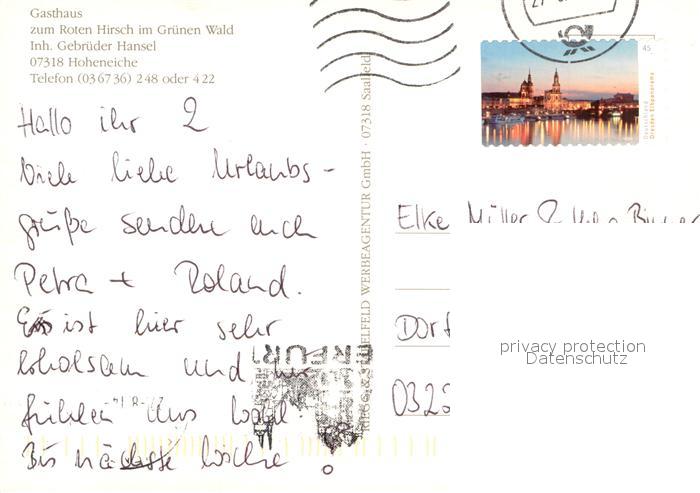 Gasthaus
zum Roten Hirsch im Grünen Wald
Inh. Gebrüder Hansel
07318 Hoheneiche
Telefon (036736) 248 oder 422
Hallo ihr 2
Viele liebe Urlaubs-
grüße senden euch
Petra + Roland.
Es ist hier sehr
erholsam und wir
fühlen uns wohl.
Bis nächste Woche
WERBEAGENTUR GmbH · 07318 Saalfeld
45
Deutschland
Dresden Elbpanorama
ERFURT
Elke Müller
Dorf
privacy protection
Datenschutz